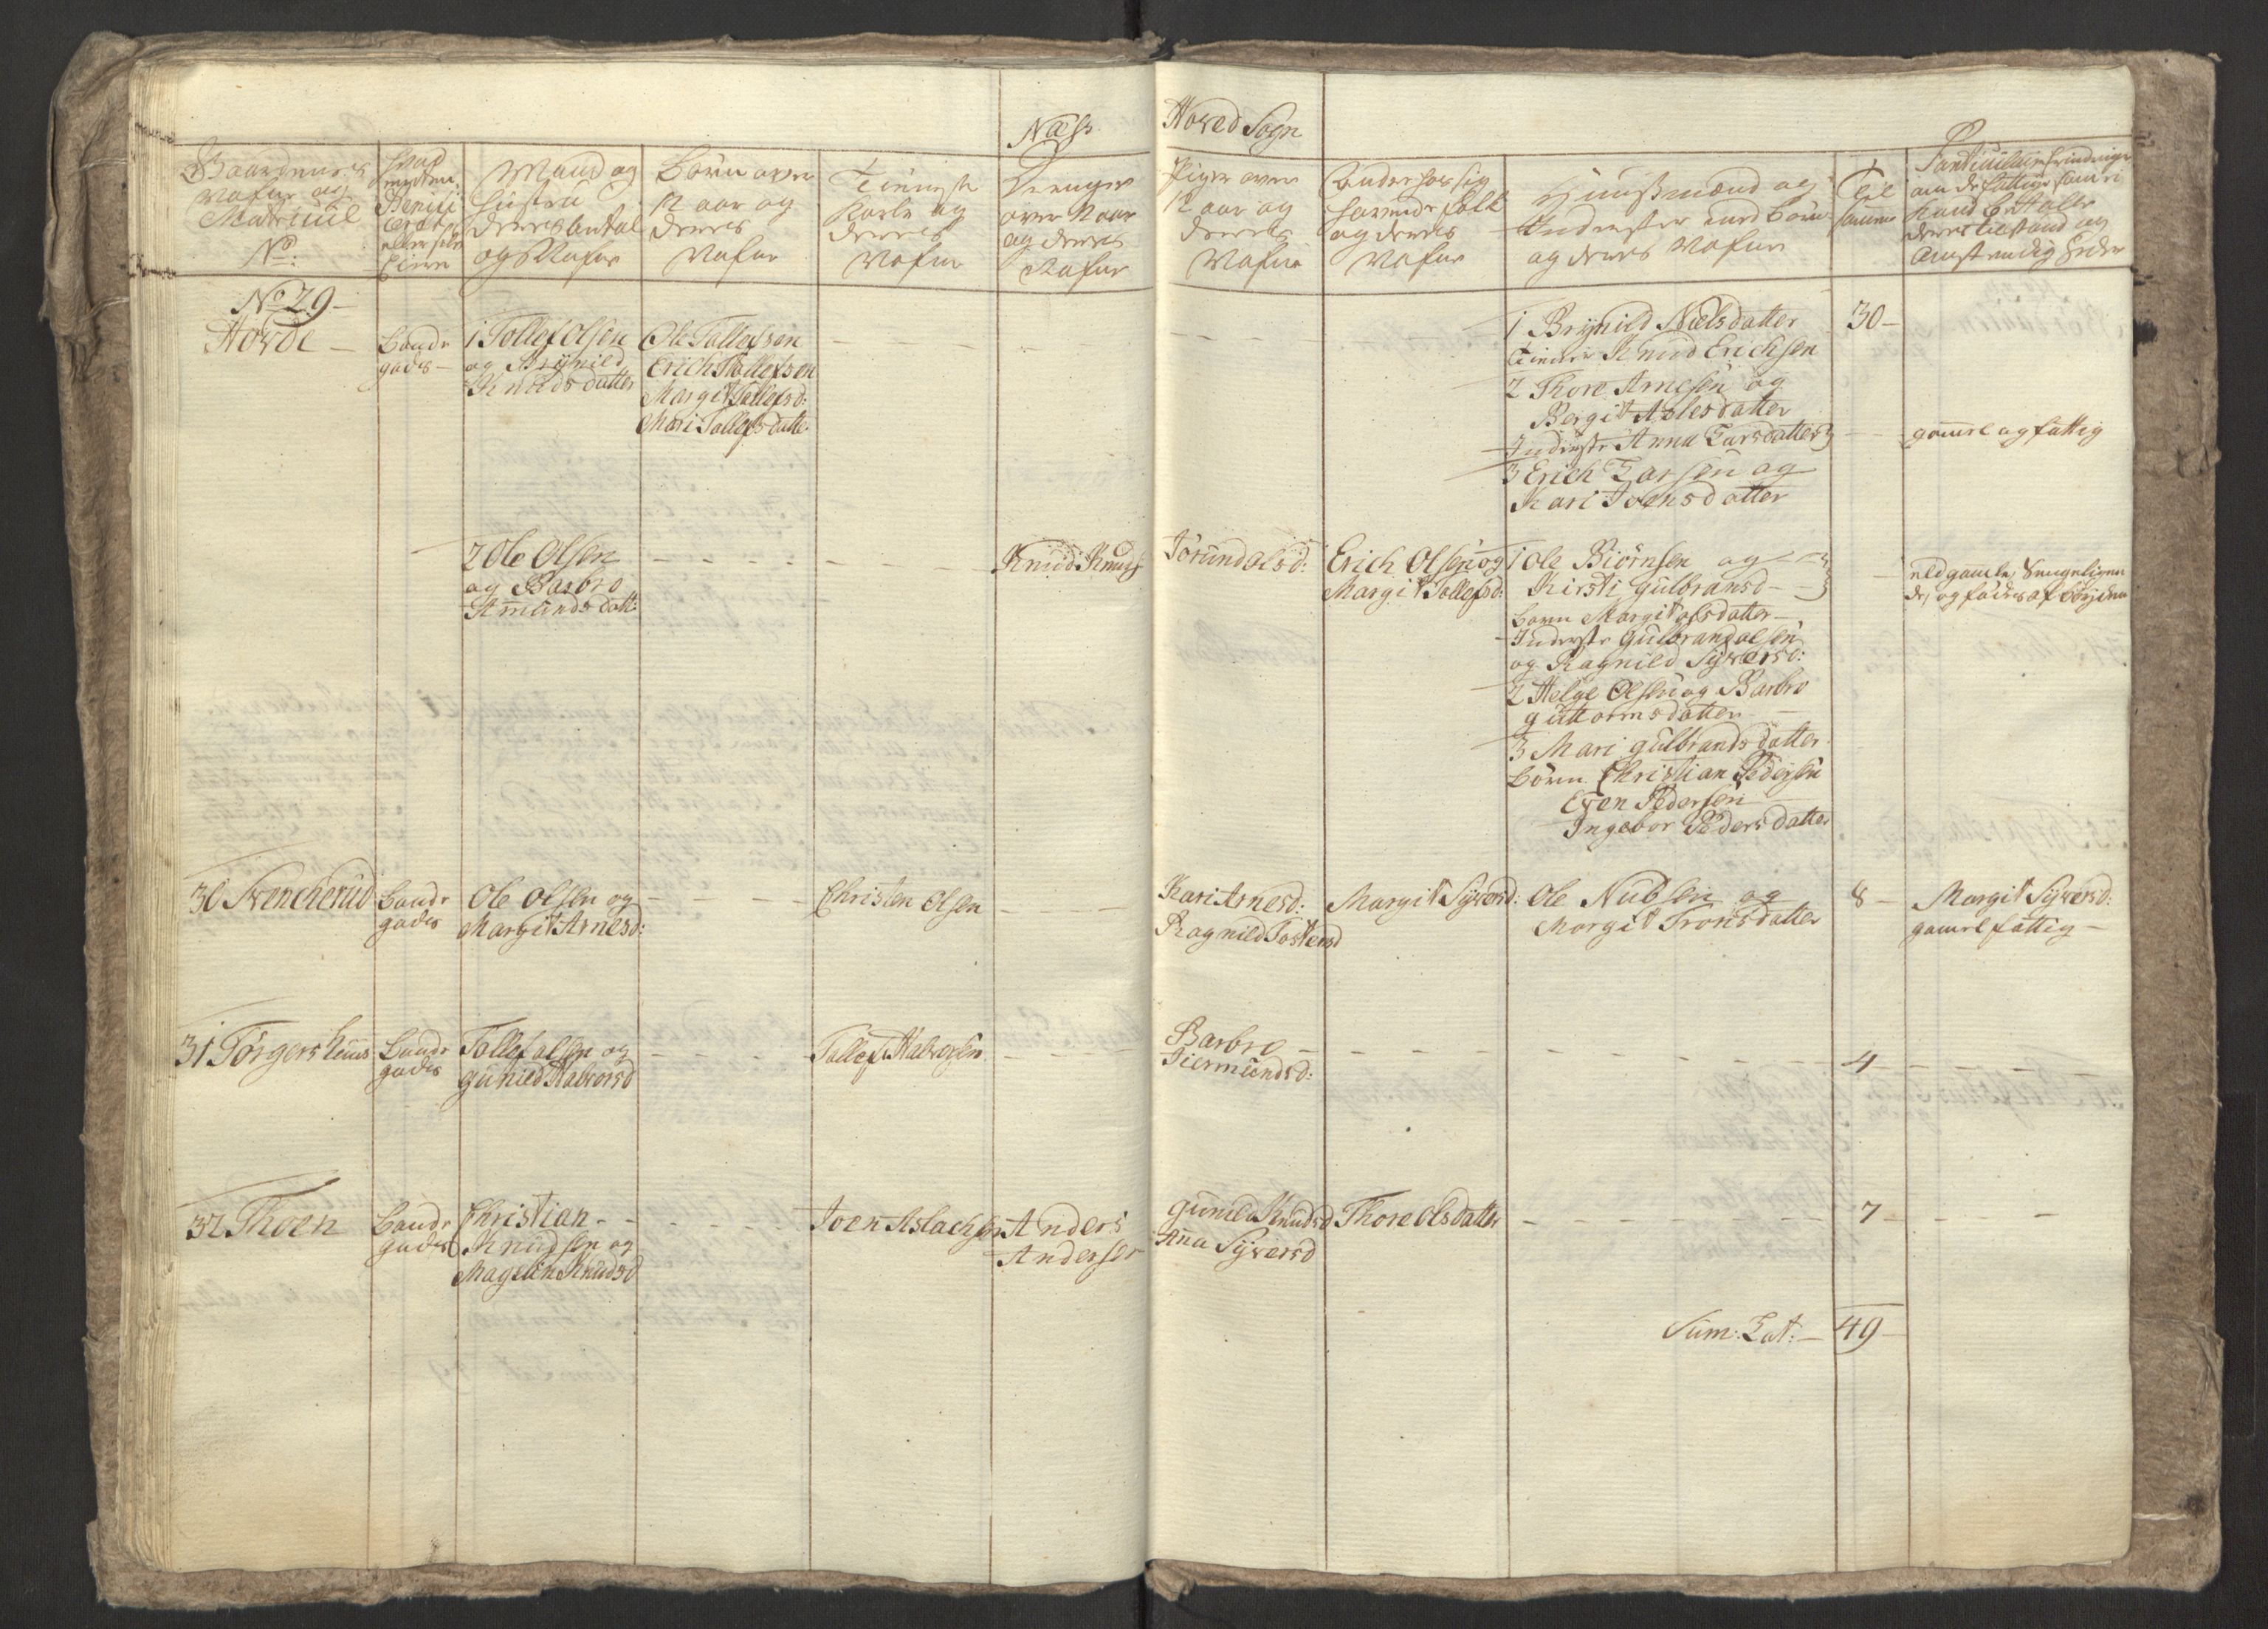 Næss
Hoved Sogn
Gaardenes
Nafne og
Matricul
No:
Mand og
Hustru
deres antal
og Nafne
Børn over
12 aar og
deres
Nafne
Tieneste
Karle og
deres
Nafne
Drenger
over 12 aar
og deres
Nafne
Piger over
12 aar og
deres
Nafne
Under for sig
folk
og deres
Nafne
Huusmænd og
Inderster med børn
og deres Nafne
Til
sammen
om de fattige som ei
kand betalle
deres tilstand og
No 29
Hovde
Bonde
gods
1 Tollef Olsen
og Brynild
Knudsdatter
Ole Tollefsen
Erich Tollefsen
Margit Tollefsd:
Mari Tollefsdatte
1 Brynild Nielsdatter
tiener Knud Erichsen
2 Thore Arnesen og
Bergit Aslesdatter
Inderste Anna Larsdatter
3 Erich Larsen og
Kari Joensdatter
30
gamel og fattig
2 Ole Olsen
og Barbro
Amundsdatt:
Knud Knuds
Jörund Olsd:
Erich Olsen og
Margit Tollefsd:
1 Ole Biörnsen og
Kirsti Gulbransd
barn Margit olsdatter
Inderste Gulbrand olsen
og Ragnild Syversd:
2 Helge Olsen og Barbro
Guttormsdatter
3 Mari Gulbrandsdatter
børn Christian Pedersen
Even Pedersen
Ingebor Pedersdatter
eld gamle, Sengeligen
de, og fødes af
30 Svencherud
Bonde
gods
Ole Olsen og
Margit Arnesd:
Christen Olsen
Kari Arnesd:
Ragnild Tostensd
Margit Syversd:
Ole Nubsen og
Margit Tronsdatter
8
Margit Syversd:
gamel fattig
31 Törgershuus
Bonde
gods
Tollef olsen og
Gunild Halvorsd
Tollef Halvorsen
Barbro
Tiermundsd:
4
32 Thoen
Bonde
gods
Christian
Knudsen og
Magelin Knudsd
Joen Aslachsen
Anders
Andersen
Gunild Knudsd
Anna Syversd
Thore Olsdatter
7
Sum: Lat: 49